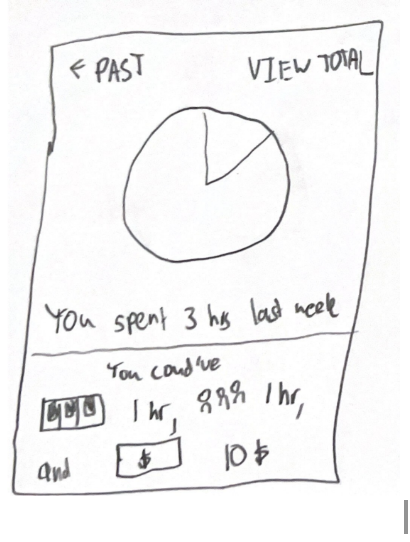 ← PAST VIEW TOTAL
You spent 3 hrs last week
You could've
1 hr, 1 hr,
and $ 10 $